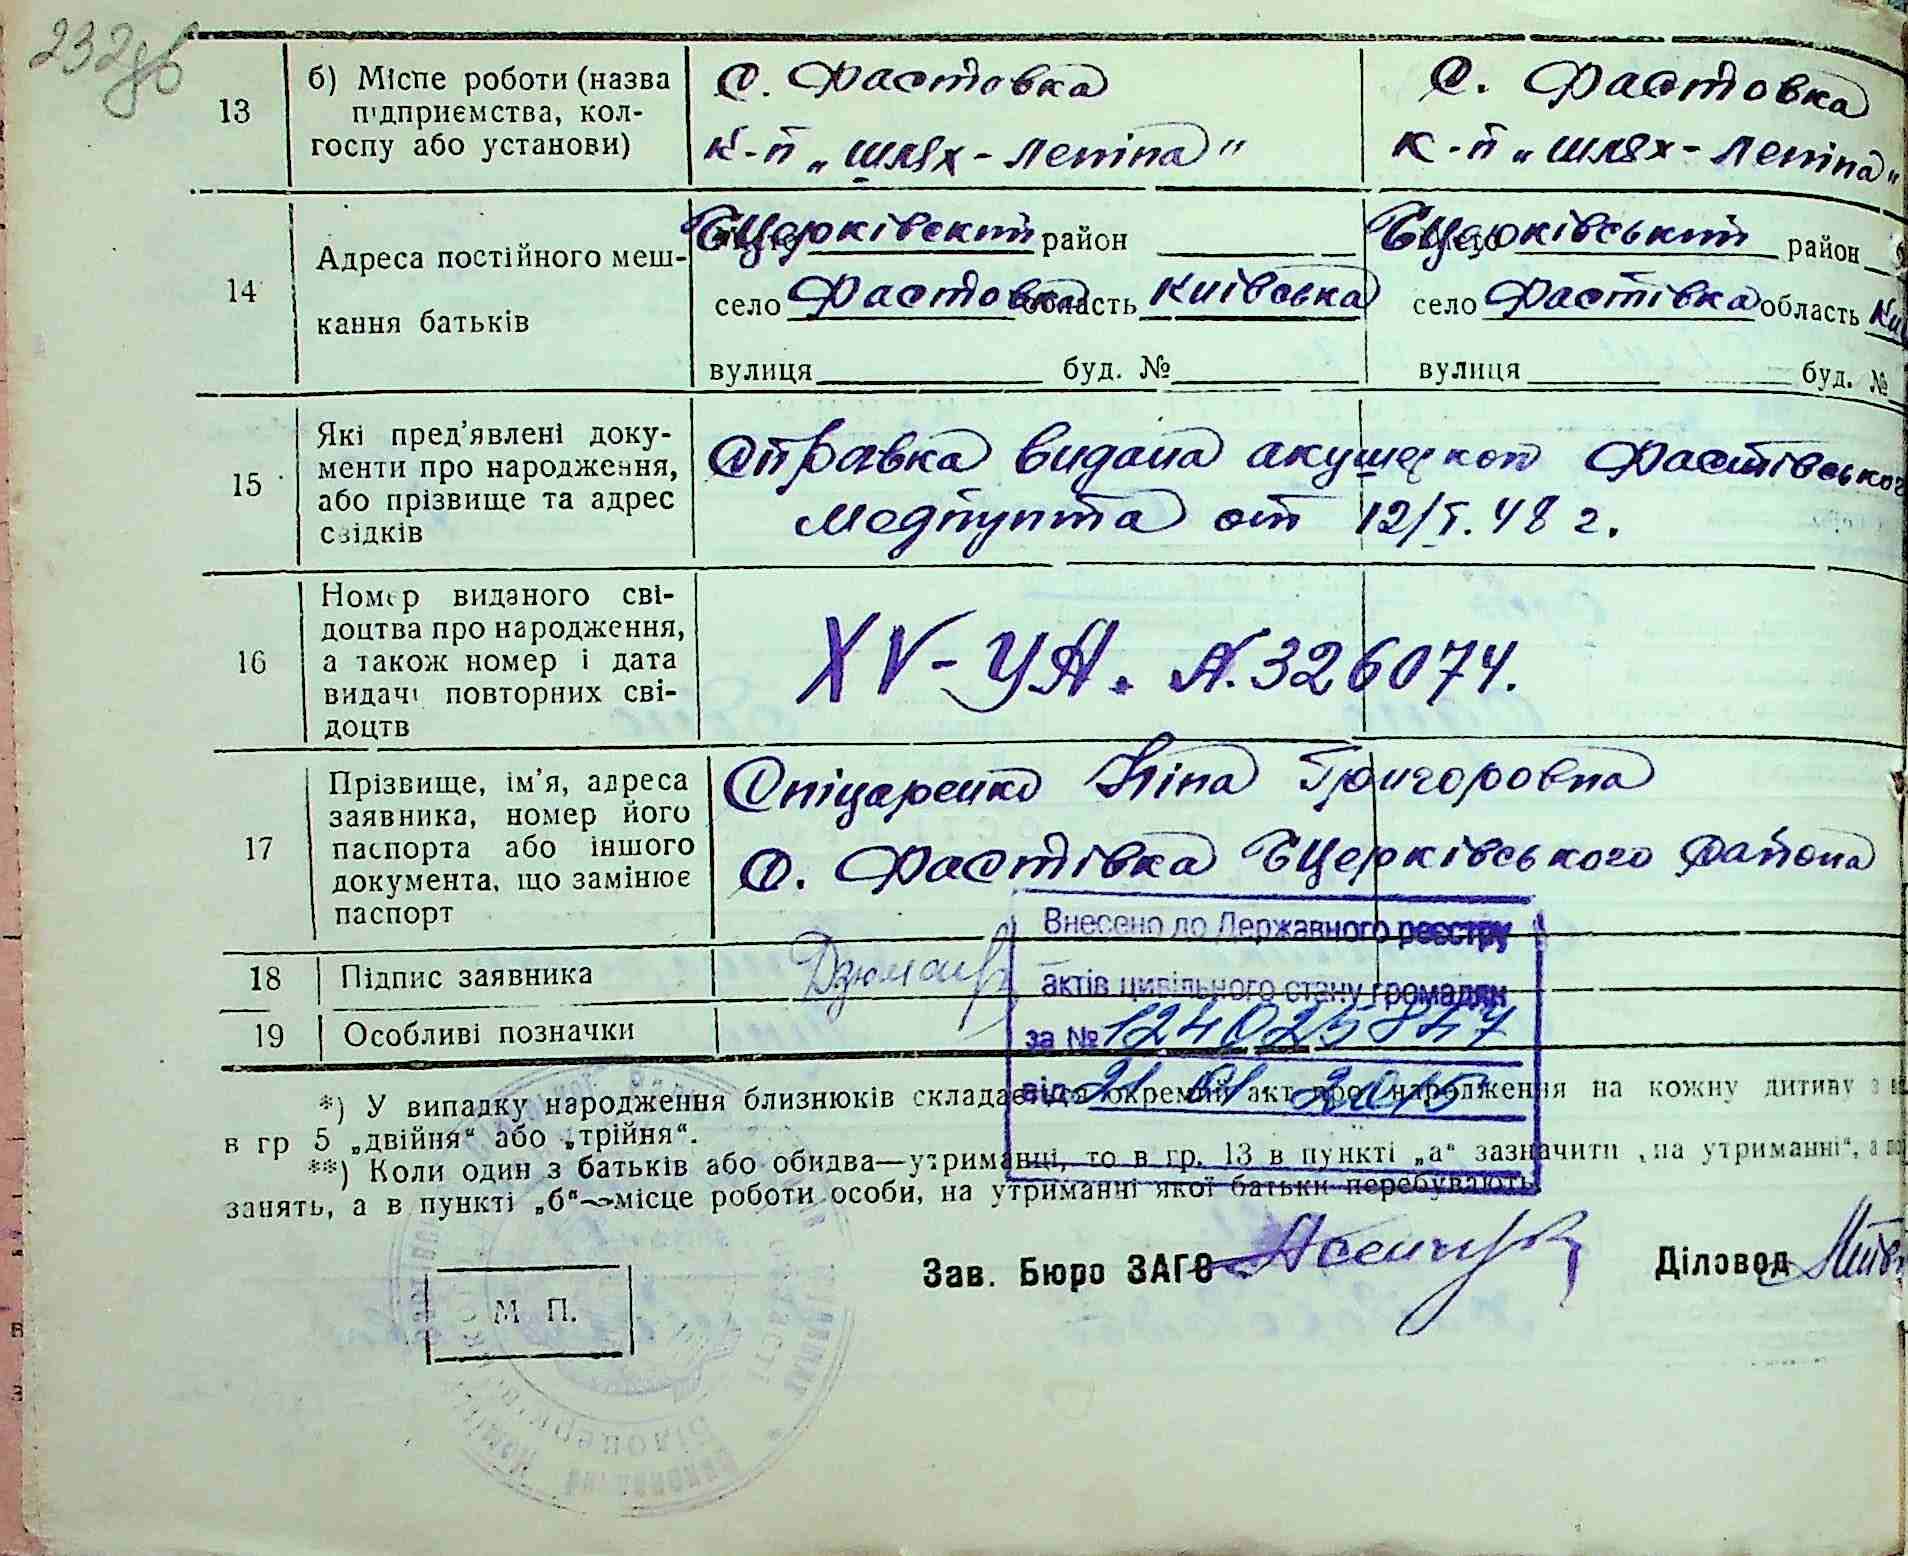 232зв
13
б) Місце роботи (назва підприємства, кол-
госпу або установи)
с. Фастовка
к-п „Шлях-Леніна"
с. Фастовка
к-п „Шлях-Леніна"
14
Адреса постійного меш-
кання батьків
БЦерківский район
село Фастовка область Київська
вулиця буд. №
БЦерківський район
село Фастівка область Киї
вулиця буд. №
15
Які пред'явлені доку-
менти про народження,
або прізвище та адрес
свідків
Справка видана акушеркой Фастівського
медпункта от 12/I. 48 г.
16
Номер виданого сві-
доцтва про народження,
а також номер і дата
видачі повторних сві-
доцтв
XV-УА. №. 326074.
17
Прізвище, ім'я, адреса
заявника, номер його
паспорта або іншого
документа, що замінює
паспорт
Сніцаренко Ніна Григоровна
с. Фастівка БЦерківського района
18
Підпис заявника
19
Особливі позначки
Внесено до Державного реєстру
актів цивільного стану громадян
за №
від 21 01. 2015
*) У випадку народження близнюків складається окремий акт про народження на кожну дитину з
в гр 5 „двійня" або „трійня".
**) Коли один з батьків або обидва—утриманці, то в гр. 13 в пункті „а" зазначити „на утриманні", а
занять, а в пункті „б"—місце роботи особи, на утриманні якої батьки перебувають.
Зав. Бюро ЗАГС
Діловод
М П.